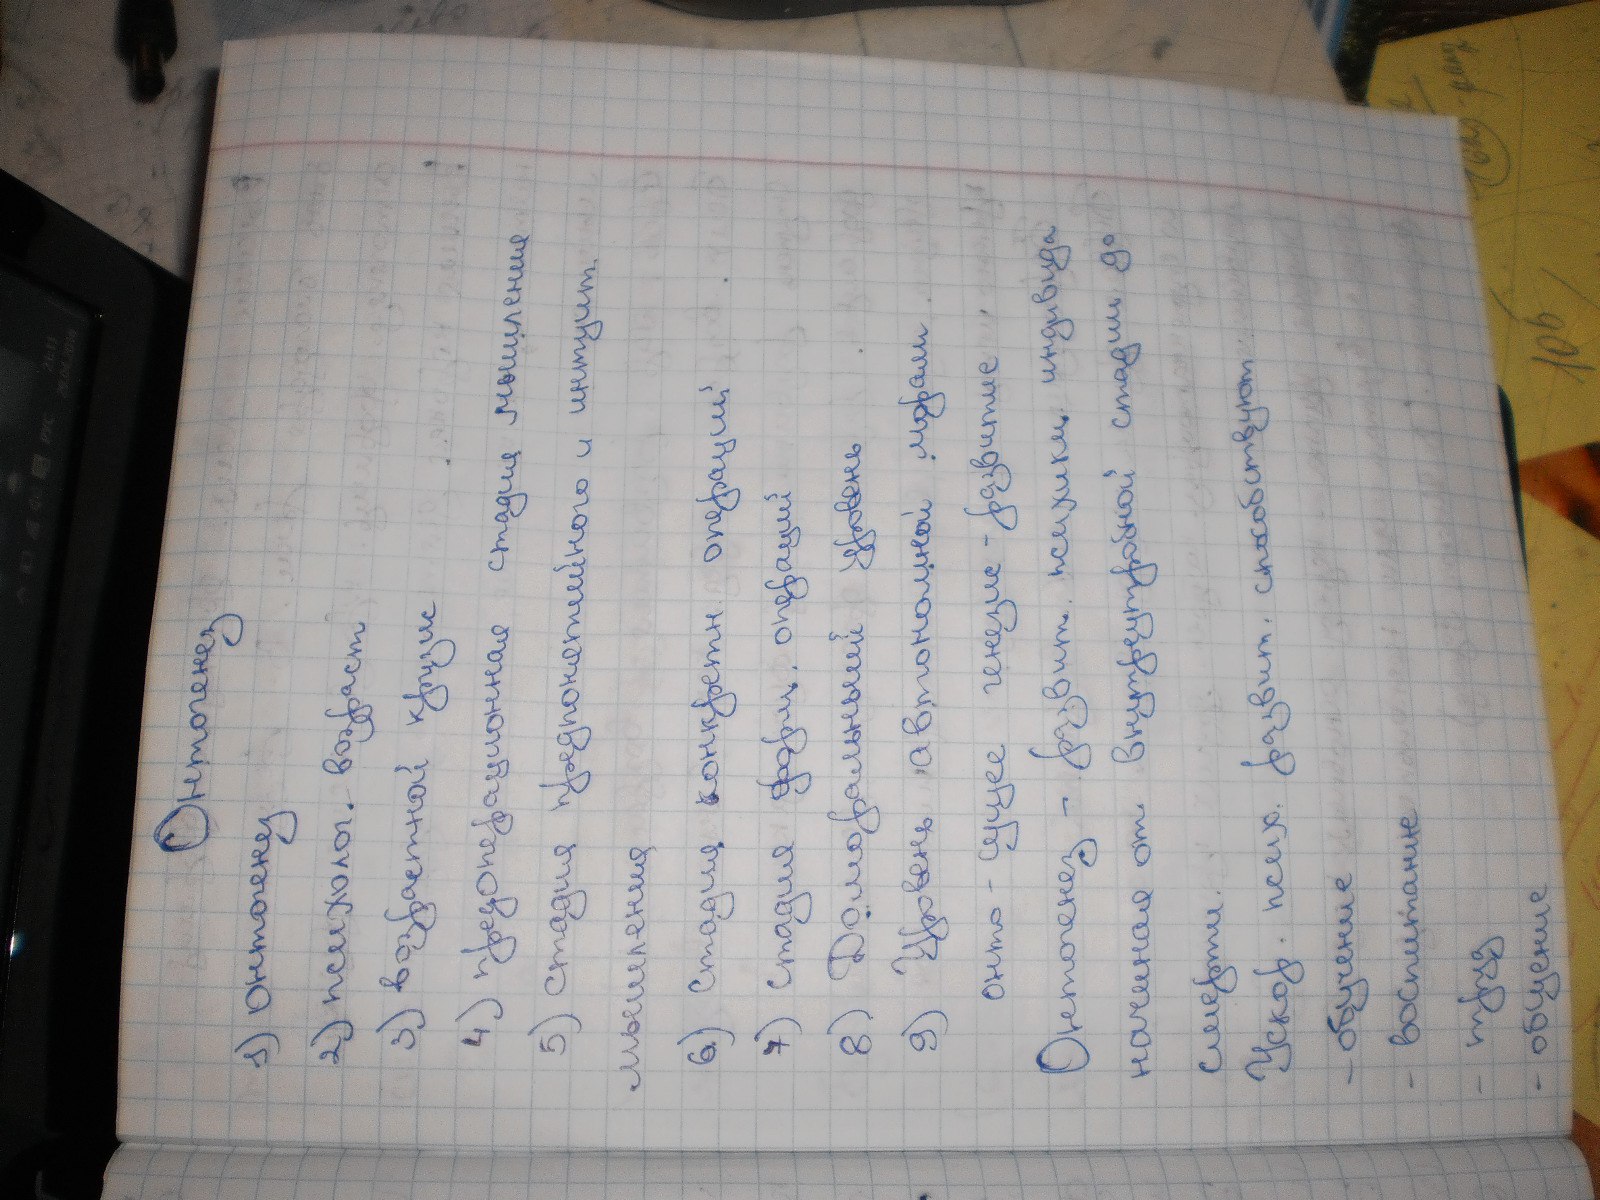 Онтогенез
1) Онтогенез
2) психолог. возраст
3) возрастной кризис
4) предоперационная стадия мышления
5) стадия предпонятийного и интуит.
мышления
6) Стадия конкретн. операций
7) Стадия форм. операций
8) Доморальный уровень
9) Уровень автономной морали
онто - сущее генезис - развитие
Онтогенез - развит. психики индивида
начиная от внутриутробной стадии до
смерти.
Ускор. псих. развит. способствуют
- обучение
- воспитание
- труд
- общение
10б